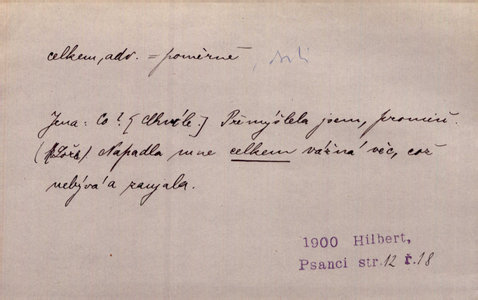 celkem, adv. = poměrně
Jena: Co? [Chvíle] Přemýšlela jsem, promiň.
Napadla mne celkem vážná věc, což
nebývá a zaujala.
1900 Hilbert,
Psanci str. 12 ř. 18